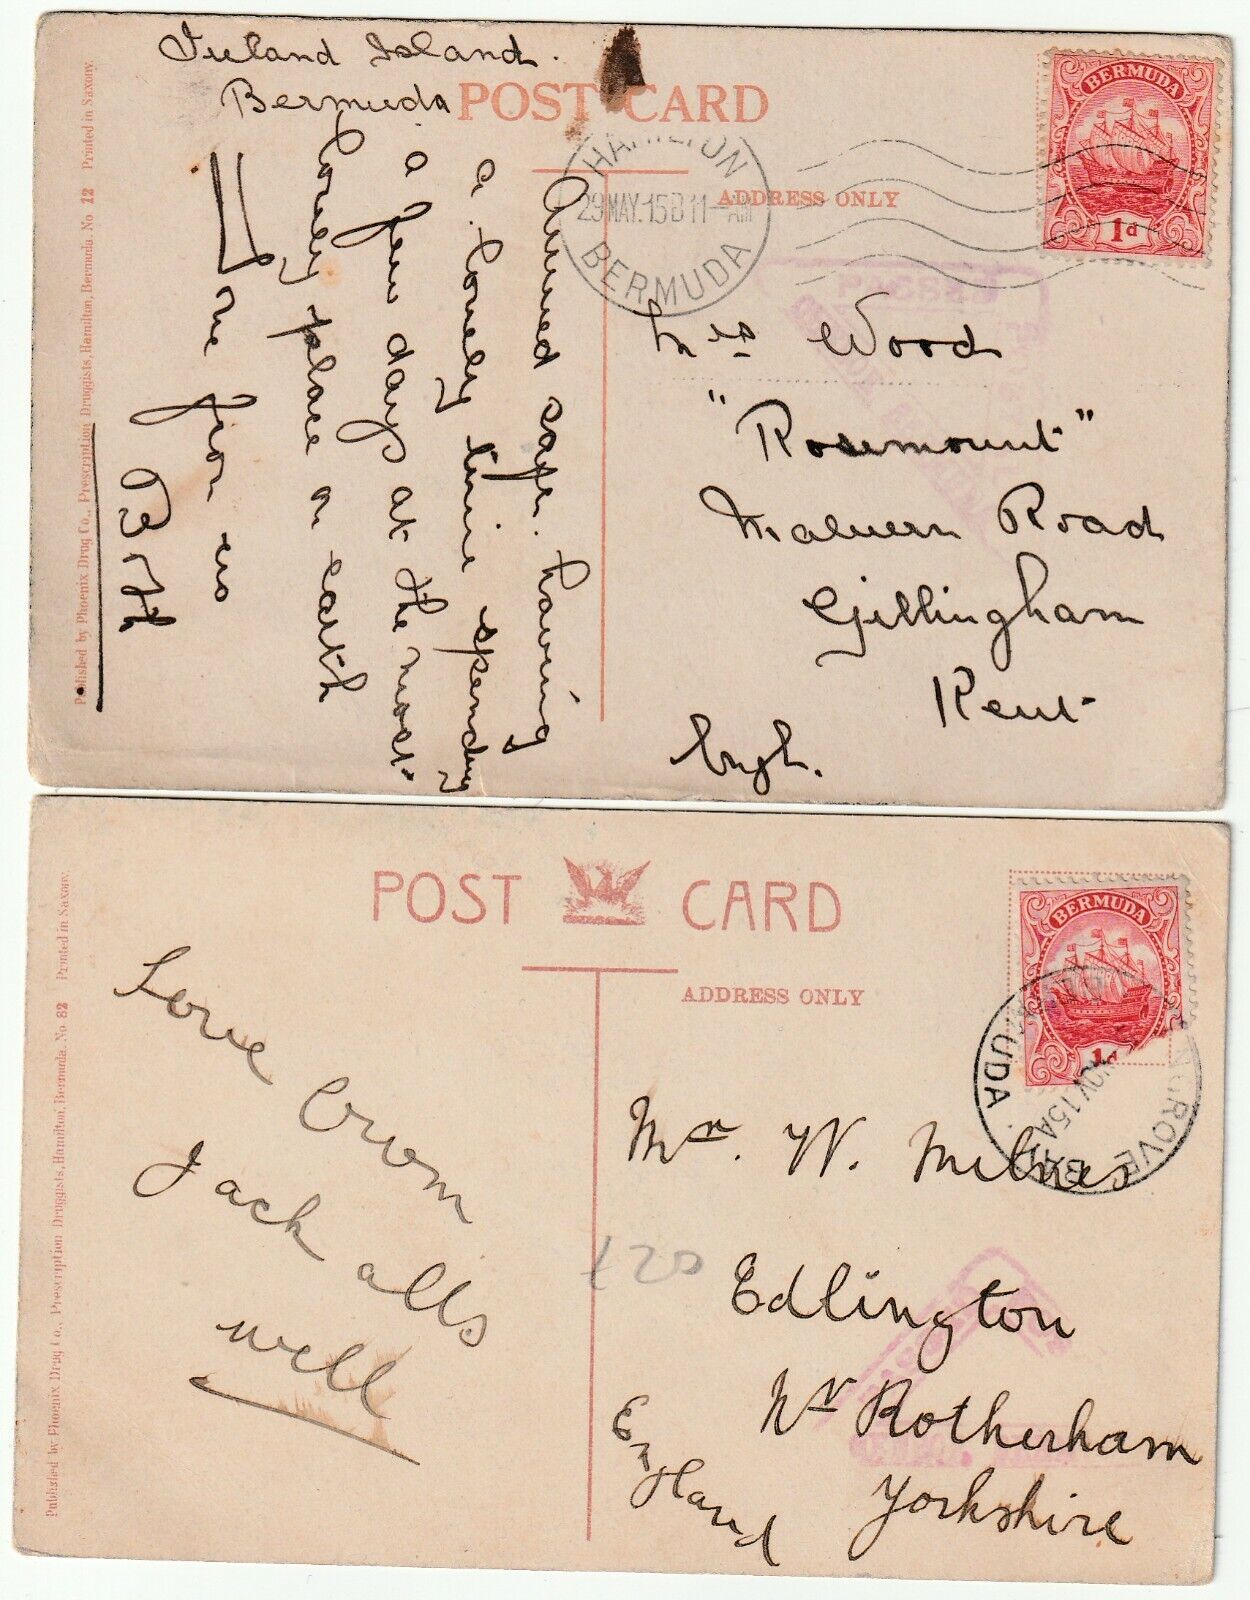 Ireland Island.
Bermuda
POST CARD
ADDRESS ONLY
HAMILTON
29 MAY. 15 D 11-AM
BERMUDA
BERMUDA
1d
PASSED
Arrived safe. having
a lovely time spending
a few days at the most
lovely place on earth
Love from us
Both
Mrs Wood
"Rosemount"
Malvern Road
Gillingham
Kent
Engl.
Published by Phoenix Drug Co., Prescription Druggists, Hamilton, Bermuda. No 12 Printed in Saxony.
POST CARD
ADDRESS ONLY
BERMUDA
1d
NGROVE BAY
UDA.
NOV 15 A
Love from
Jack alls
well
Mr. W. Milnes
Edlington
Nr Rotherham
Yorkshire
England
£20
Published by Phoenix Drug Co., Prescription Druggists, Hamilton, Bermuda. No 82 Printed in Saxony.